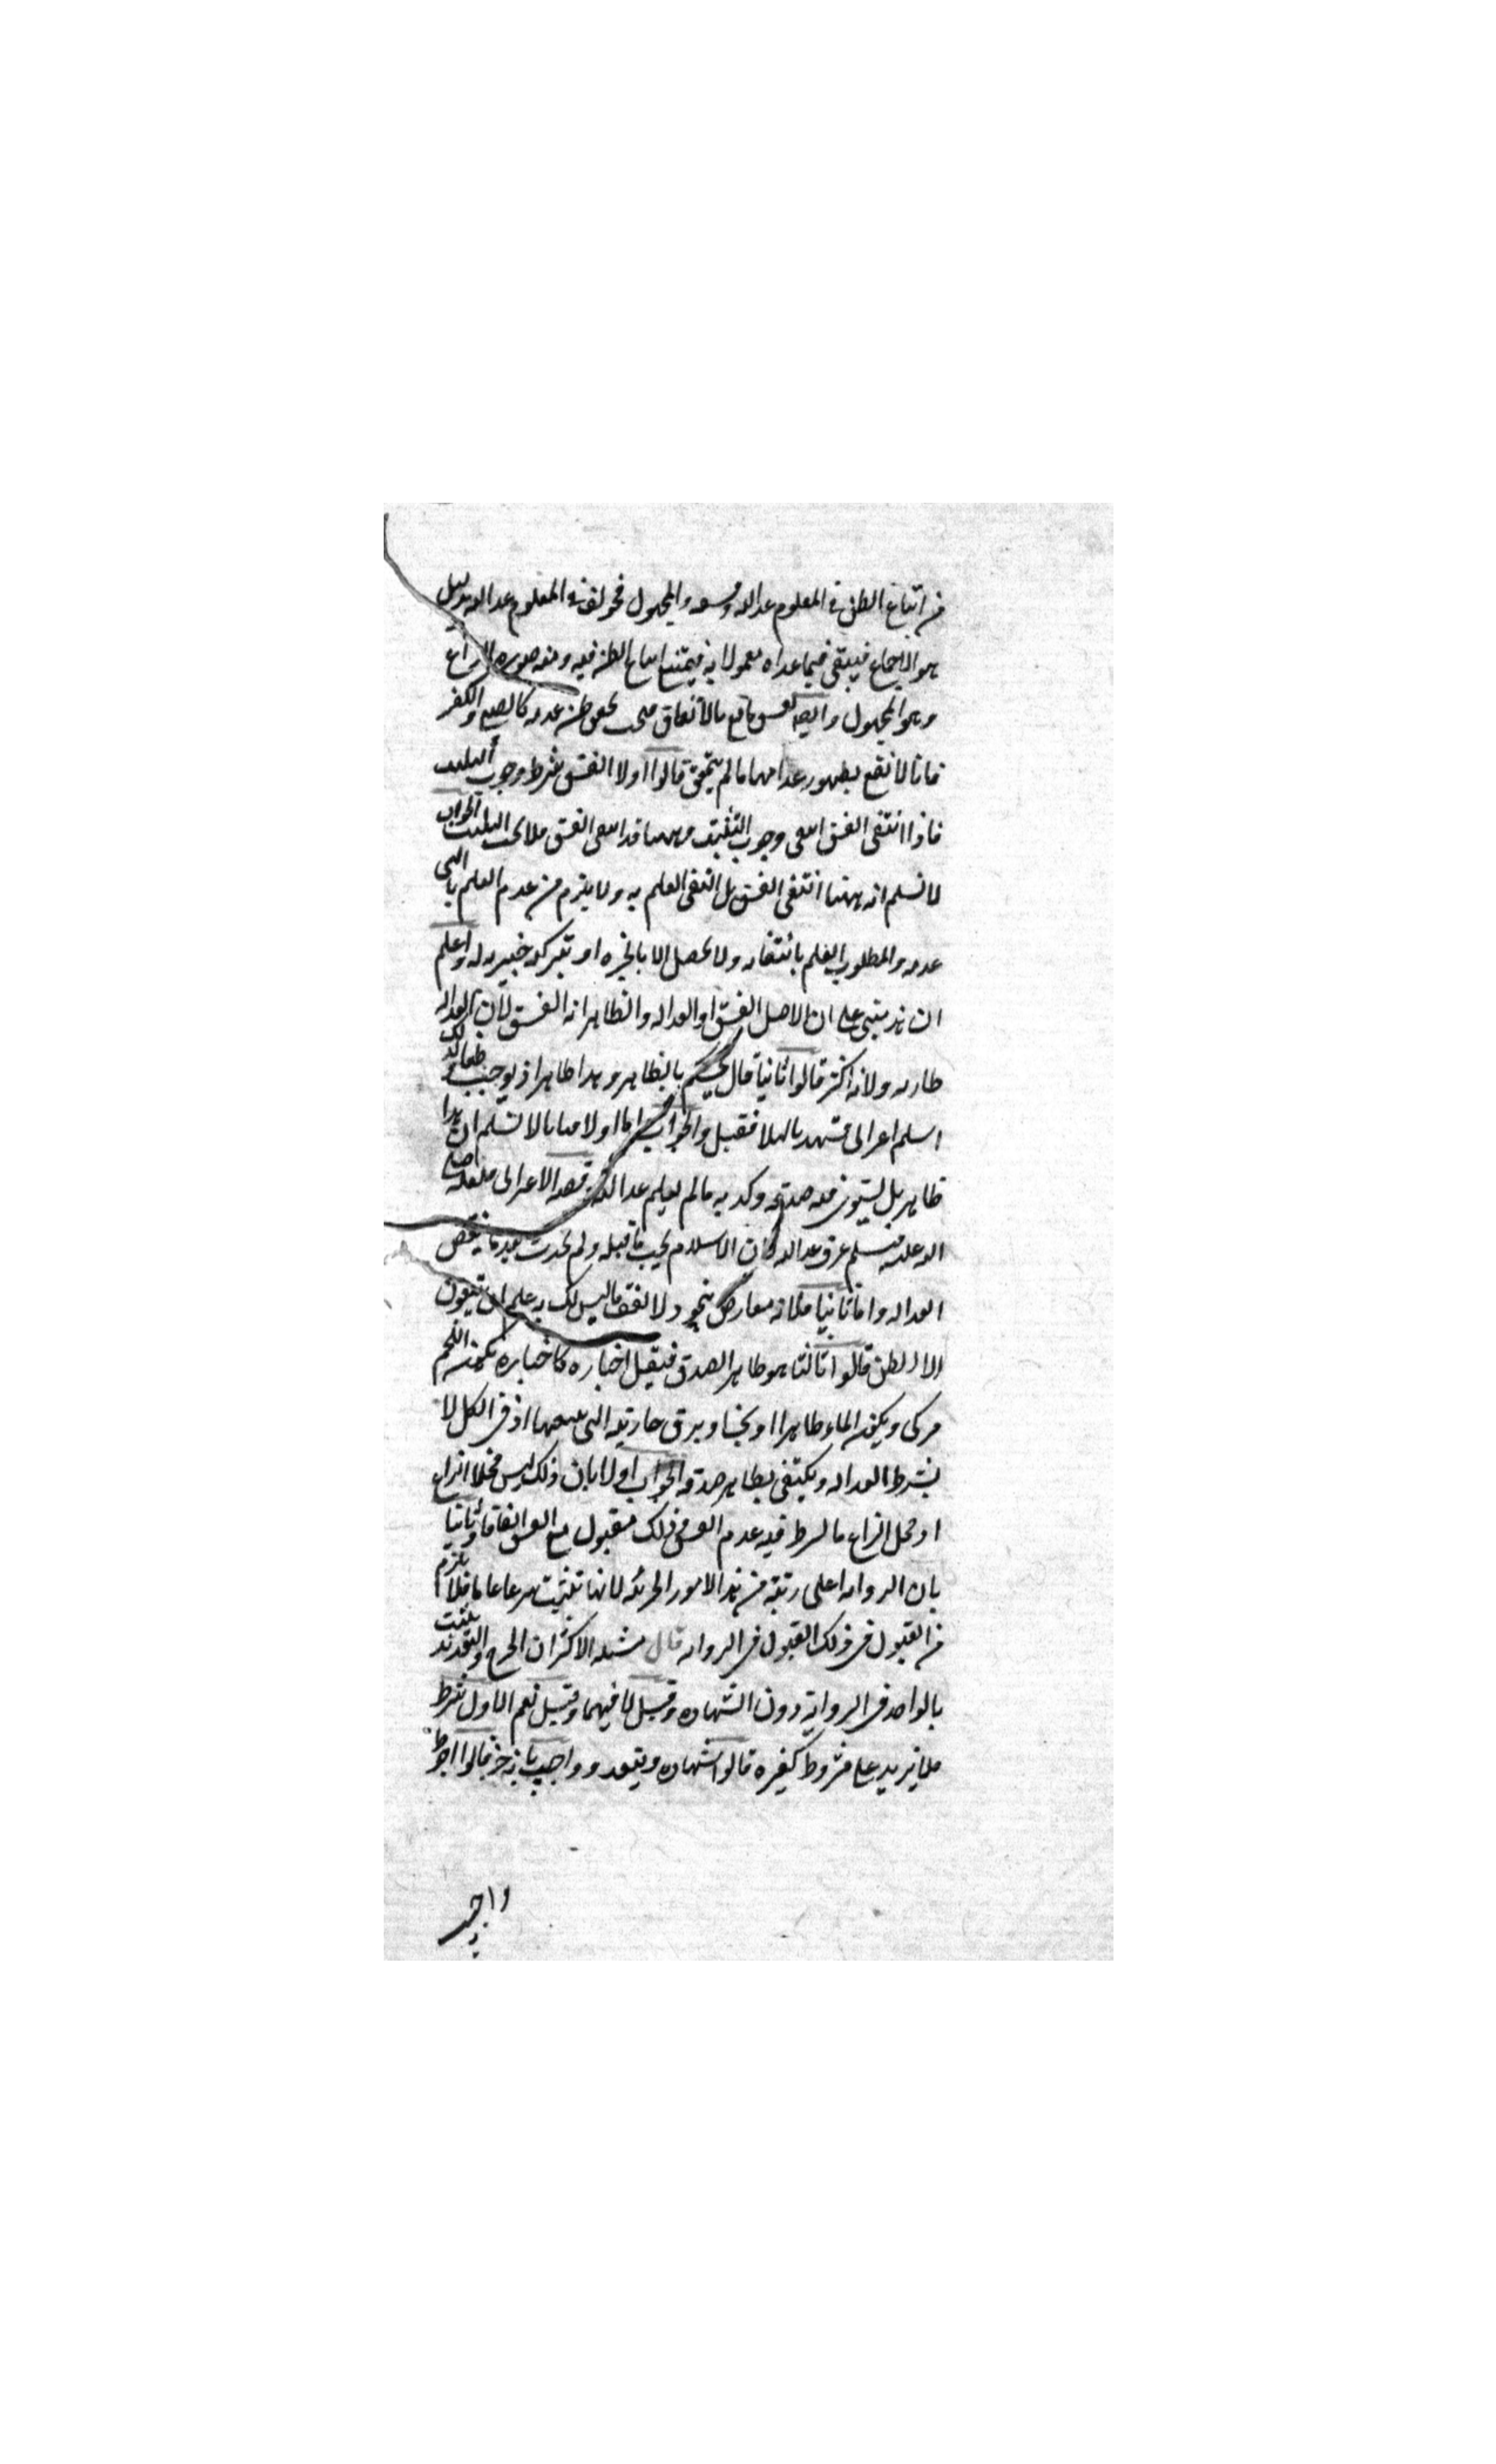 من اتباع الظن في المعلوم عدالته وفسقه والمجهول فخولف في المعلوم عدالته بدليل
هو الاجماع فيبقى فيما عداه معمولا به فيمتنع اتباع الظن فيه ومنه صورة النزاع
وهو المجهول وايضا الفسق مانع بالاتفاق فيجب تحقق ظن عدمه كالصبي والكفر
فانا لا نقنع بظهور عدمهما ما لم يتحقق قالوا اولا الفسق شرط وجوب التثبت
فاذا انتفى الفسق انتفى وجوب التثبت وههنا قد انتفى الفسق فلا يجب التثبت الجواب
لا نسلم انه ههنا انتفى الفسق بل انتفى العلم به ولا يلزم من عدم العلم بالشي
عدمه والمطلوب العلم بانتفائه ولا يحصل الا بالخبرة او تزكية خبير به له واعلم
ان هذا مبني على ان الاصل الفسق او العدالة والظاهر انه الفسق لان العدالة
طارية ولانه اكثر قالوا ثانيا قال نحكم بالظاهر وهذا ظاهر اذ يوجب ظنا ولذلك
اسلم اعرابي فشهد بالهلال فقبل والجواب اما اولا فبانا لا نسلم ان هذا
ظاهر بل يستوي فيه صدقه وكذبه ما لم يعلم عدالته وقصة الاعرابي فلعله صلى
الله عليه وسلم عرف عدالته فان الاسلام يجب ما قبله ولم يحدث بعد ما ينقض
العدالة واما ثانيا فلانه معارض بنحو ولا تقف ما ليس لك به علم ان تتبعون
الا الظن قالوا ثالثا هو ظاهر الصدق فيقبل اخباره كاخباره بكون اللحم
مزكى وبكون الماء طاهرا او نجسا وبرق جاريته التي يبيعها اذ في الكل لا
يشترط العدالة ويكتفى بظاهر صدقه الجواب اولا بان ذلك ليس محلا النزاع
اذ محل النزاع ما اشترط فيه عدم الفسق وذلك مقبول مع الفسق اتفاقا وثانيا
بان الرواية اعلى رتبة من هذا الامور الجزئية لانها تثبت شرعا عاما فلا يلزم
من القبول في ذلك القبول في الرواية قال مسئلة الاكثر ان الجرح والتعديل يثبت
بالواحد في الرواية دون الشهادة وقيل لا فيهما وقيل نعم الاول شرط
فلا يزيد على مشروط كغيره قالوا شهادة ويتعدد واجيب بانه خبر قالوا احوط
واجيب